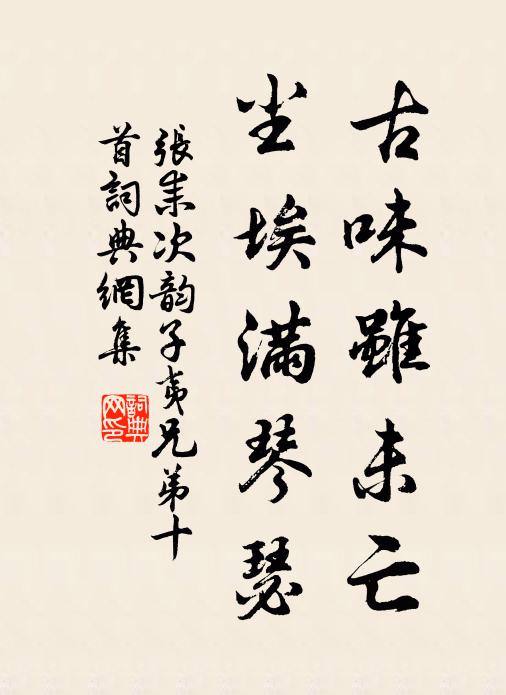 古味雖未亡
尘埃满琴瑟
張耒次韵子夷兄弟十
首詞典網集
詞典
网印